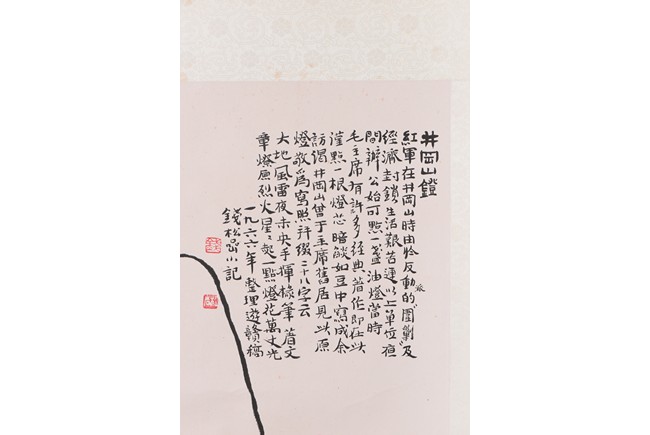 井岡山鐙
紅軍在井岡山時由於反動派的"圍剿"及
經濟封鎖生活艱苦連以上單位夜
間辦公始可點一盞油燈當時
毛主席有許多經典著作即在此
僅點一根燈芯暗談如豆中寫成余
訪謁井岡山曾于主席舊居見此原
燈敬爲寫照并綴二十八字云
大地風雷夜未央手揮椽筆著文
章燎原烈火星星起一點燈花萬丈光
一九六六年整理遊贛稿
錢松喦小記